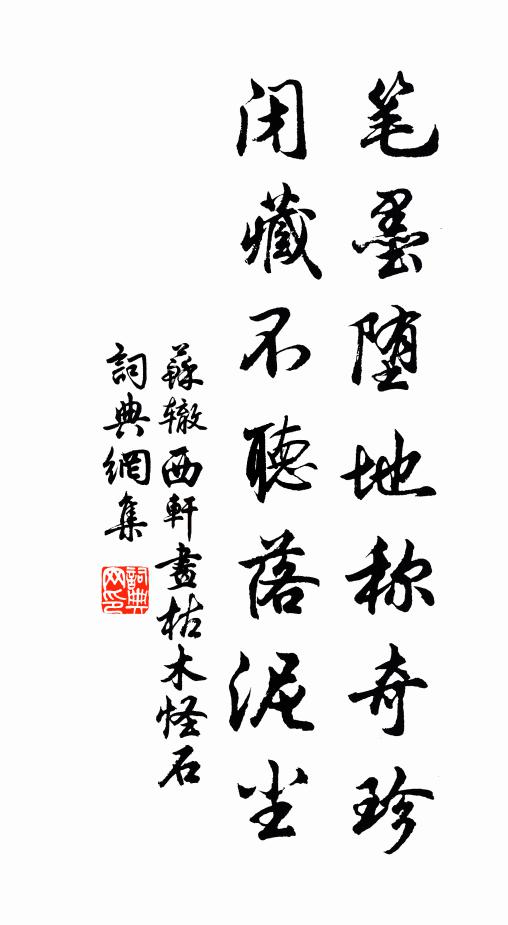 笔墨堕地称奇珍
闭藏不聽落泥尘
蘇辙西軒畫枯木怪石
詞典網集
詞典网印